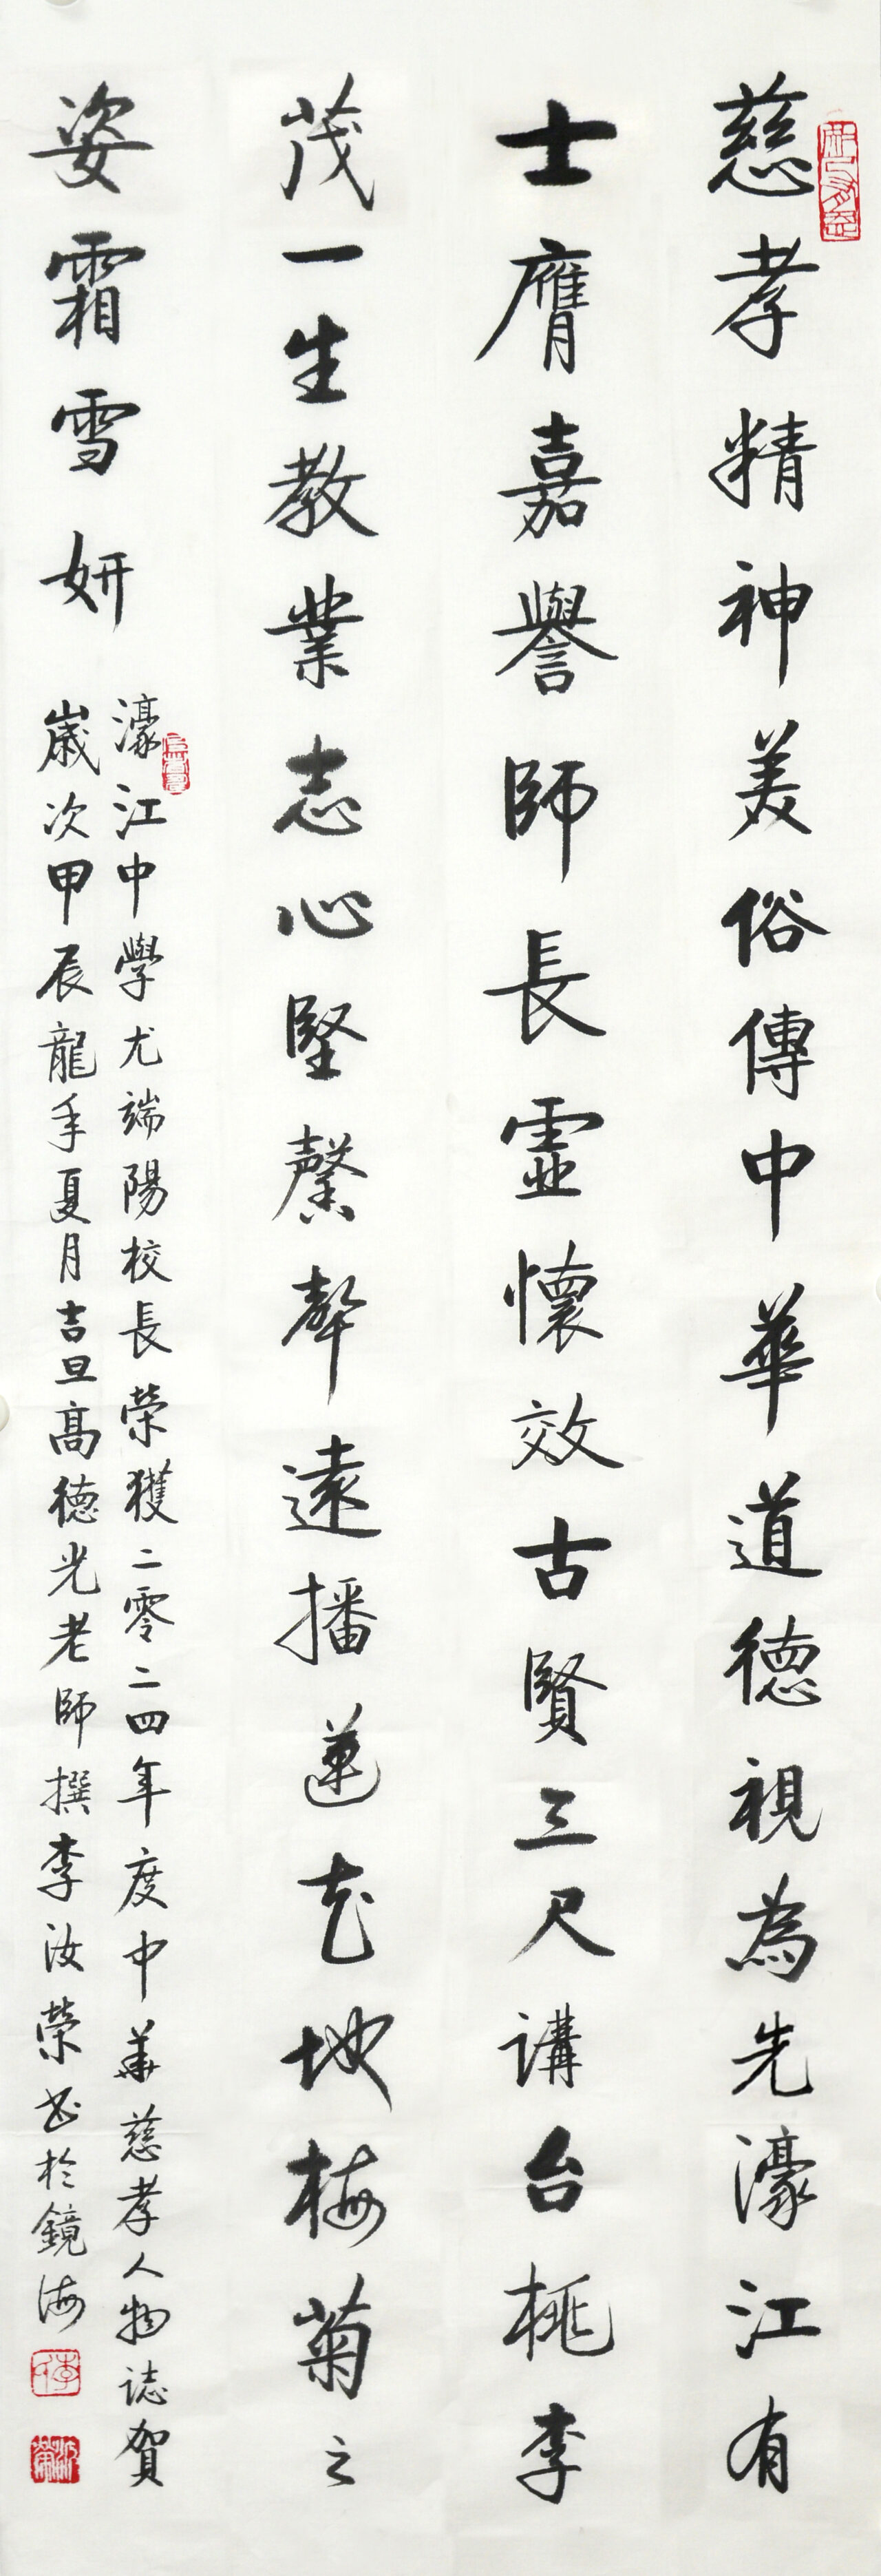 慈孝精神美俗傳中華道德視為先濠江有
士膺嘉譽師長靈懷效古賢三尺講台桃李
茂一生教業志心堅馨聲遠播蓮花地梅菊之
姿霜雪妍
濠江中學尤端陽校長榮獲二零二四年度中華慈孝人物誌賀
歲次甲辰龍年夏月吉旦高德光老師撰李汝榮書於鏡海